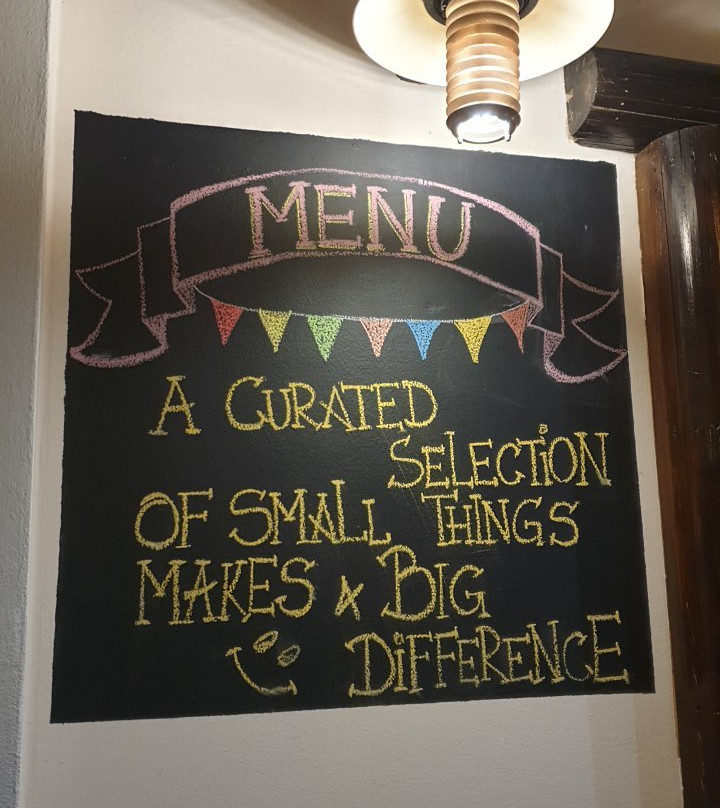 MENU
A CURATED
SELECTION
OF SMALL THINGS
MAKES A BIG
DIFFERENCE